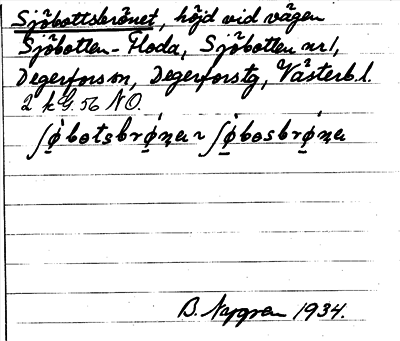 Sjöbottsbrånet, höjd vid vägen
Sjöbotten-Floda, Sjöbotten nr 1,
Degerfors sn, Degerfors tg, Västerb. l.
2 k G. 56 NO.
ʃø̀botsbrø̀nɛ ~ ʃø̀bosbrø̀nɛ
B. Nygren 1934.